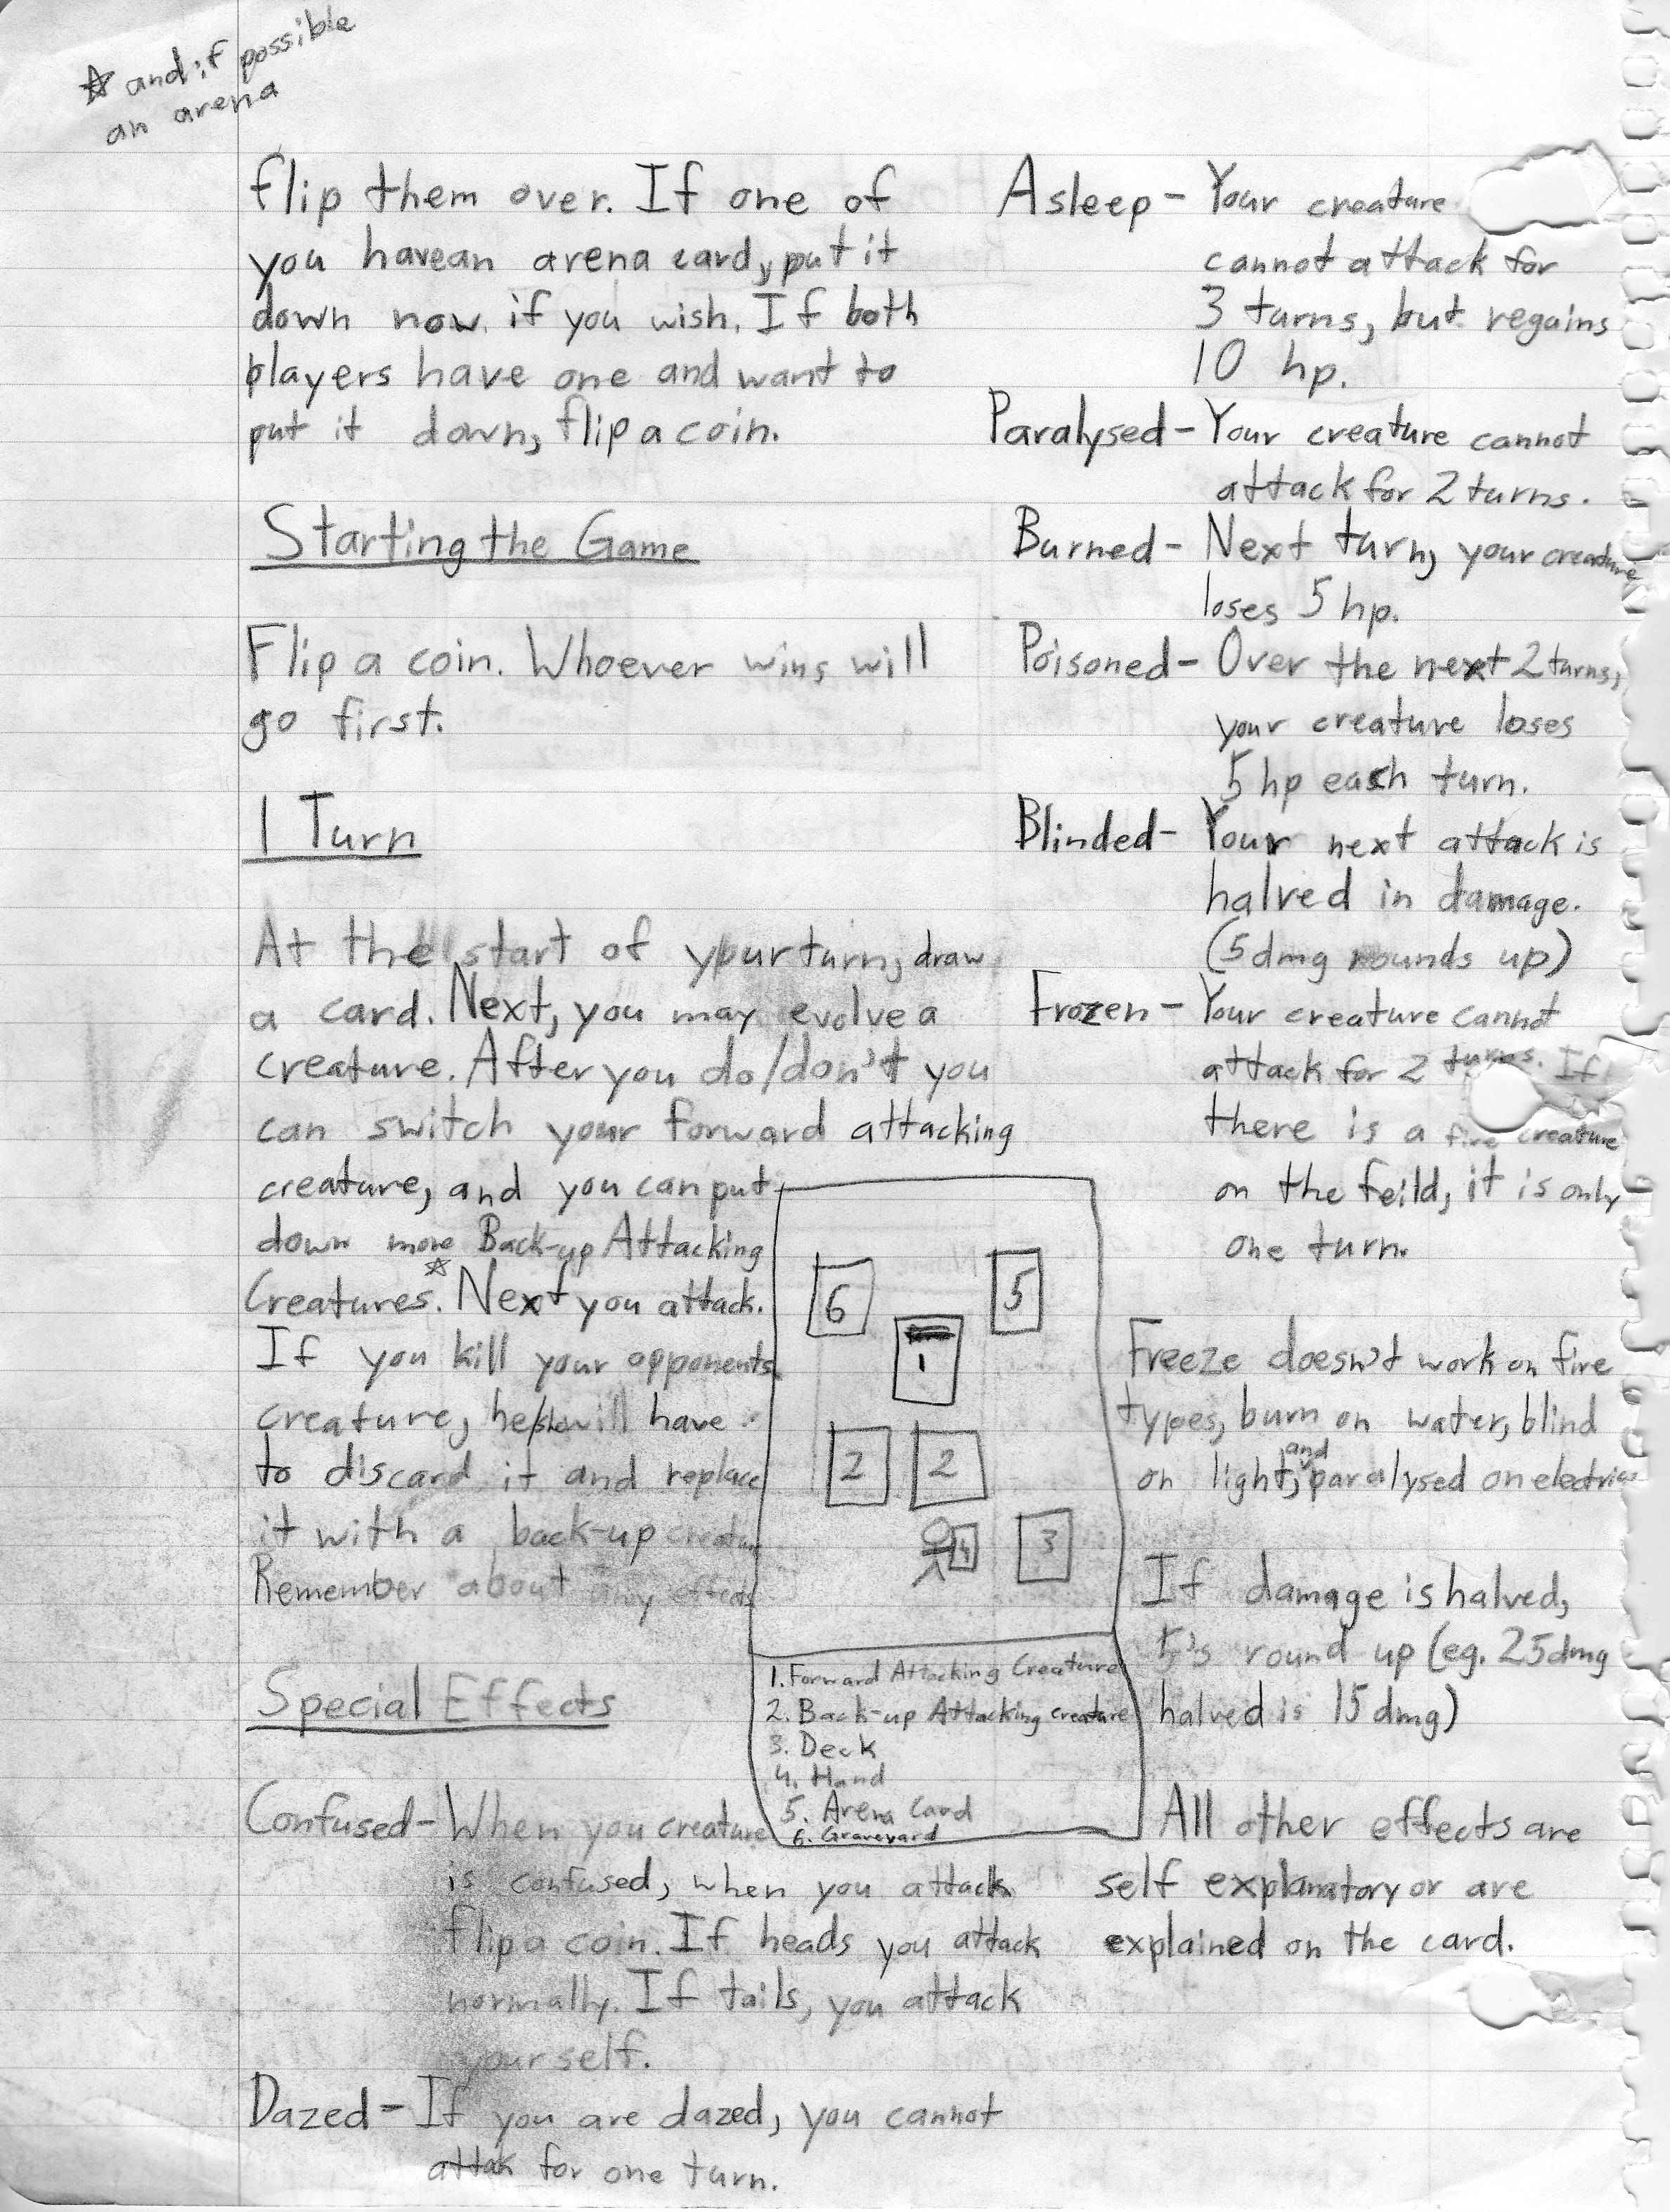 ☆ and if possible
an arena
flip them over. If one of
you havean arena card, put it
down now if you wish. If both
players have one and want to
put it down, flip a coin.
Starting the Game
Flip a coin. Whoever wins will
go first.
1 Turn
At the start of your turn, draw
a card. Next, you may evolve a
creature. After you do/don't you
can switch your forward attacking
creature, and you can put
down more Back-up Attacking
Creatures.☆ Next you attack.
If you kill your opponents
creature, he/she will have
to discard it and replace
it with a back-up creature
Remember about any effects
Special Effects
Confused- When you creature
is confused, when you attack
flip a coin. If heads you attack
normally. If tails, you attack
yourself.
Dazed- If you are dazed, you cannot
attak for one turn.
6
5
1
2 2
4 3
1. Forward Attacking Creature
2. Back-up Attacking creature
3. Deck
4. Hand
5. Arena Card
6. Graveyard
Asleep- Your creature
cannot attack for
3 turns, but regains
10 hp.
Paralysed- Your creature cannot
attack for 2 turns.
Burned- Next turn, your creature
loses 5 hp.
Poisoned- Over the next 2 turns,
your creature loses
5 hp each turn.
Blinded- Your next attack is
halved in damage.
(5 dmg rounds up)
Frozen- Your creature cannot
attack for 2 turns. If
there is a fire creature
on the feild, it is only
one turn.
Freeze doesn't work on fire
types, burn on water, blind
on light, and paralysed on electric
If damage is halved,
5's round up (eg. 25dmg
halved is 15 dmg)
All other effects are
self explanatory or are
explained on the card.